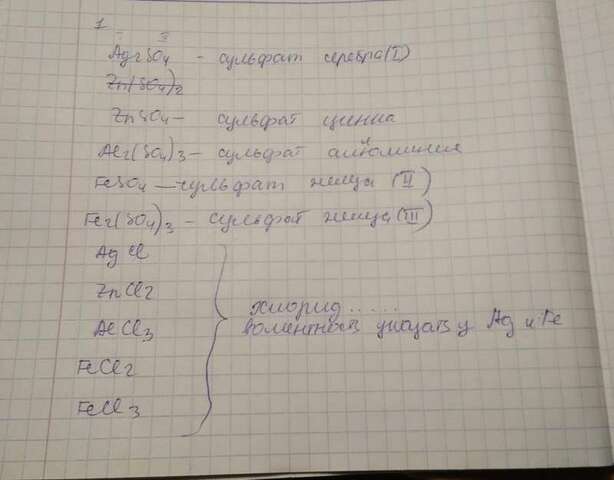 1
II
Ag2SO4 - сульфат серебра(I)
Zn(SO4)2
ZnSO4 - сульфат цинка
Al2(SO4)3 - сульфат алюминия
FeSO4 - сульфат железа (II)
Fe2(SO4)3 - сульфат железа (III)
AgCl
ZnCl2
AlCl3
FeCl2
FeCl3
хлорид.....
валентность указать у Ag и Fe